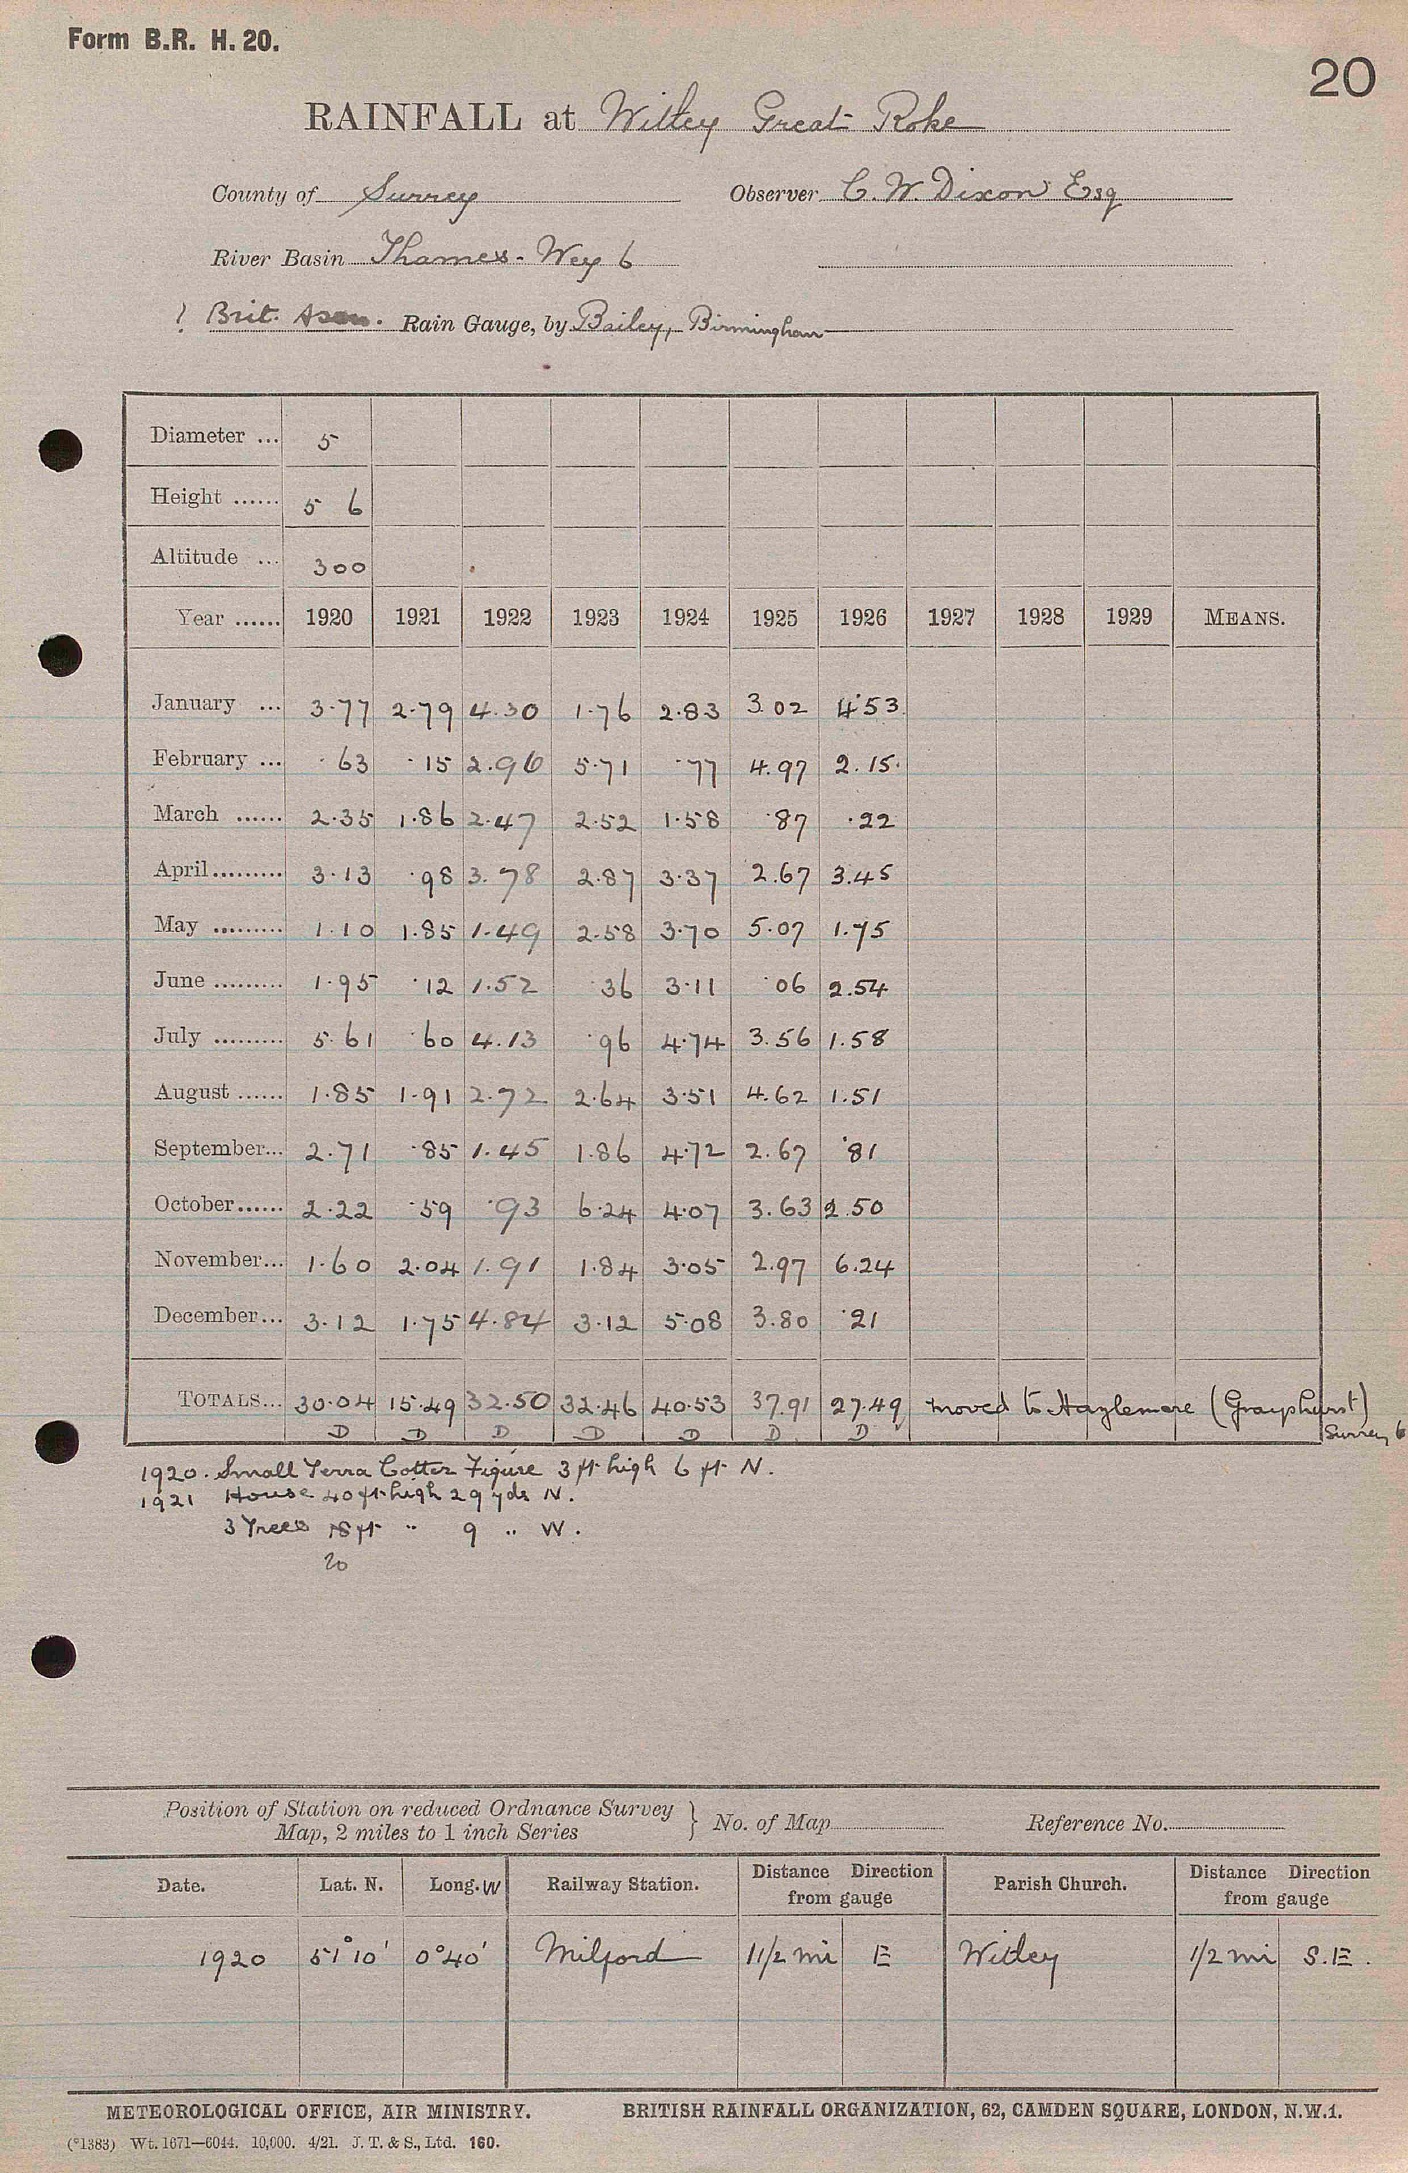 Form B.R. H. 20.
20
RAINFALL at Witley Great Roke
County of Surrey Observer C. W. Dixon Esq
River Basin Thames - Wey 6
? Brit. Assn. Rain Gauge, by Bailey, Birmingham
Diameter ... 5
Height ...... 5 6
Altitude ... 300
Year ...... 1920 1921 1922 1923 1924 1925 1926 1927 1928 1929 MEANS.
January ... 3.77 2.79 4.30 1.76 2.83 3.02 4.53
February ... .63 .15 2.96 5.71 .77 4.97 2.15
March ...... 2.35 1.86 2.47 2.52 1.58 .87 .22
April......... 3.13 .98 3.78 2.87 3.37 2.67 3.45
May ......... 1.10 1.85 1.49 2.58 3.70 5.07 1.75
June ......... 1.95 .12 1.52 .36 3.11 .06 2.54
July ......... 5.61 .60 4.13 .96 4.74 3.56 1.58
August ...... 1.85 1.91 2.72 2.64 3.51 4.62 1.51
September... 2.71 .85 1.45 1.86 4.72 2.67 .81
October...... 2.22 .59 .93 6.24 4.07 3.63 2.50
November... 1.60 2.04 1.91 1.84 3.05 2.97 6.24
December... 3.12 1.75 4.84 3.12 5.08 3.80 .21
TOTALS... 30.04 15.49 32.50 32.46 40.53 37.91 27.49 moved to Hazlemere (Grayshurst)
D D D D D D D Surrey 6
1920. Small Terra Cotter Figure 3 ft high 6 ft N.
1921 House 40 ft high 29 yds N.
3 Trees 18 ft " 9 " W.
20
Position of Station on reduced Ordnance Survey
Map, 2 miles to 1 inch Series } No. of Map Reference No.
Date. Lat. N. Long. W Railway Station. Distance Direction from gauge Parish Church. Distance Direction from gauge
1920 51°10' 0°40' Milford 1 1/2 mi E Witley 1/2 mi S.E.
METEOROLOGICAL OFFICE, AIR MINISTRY. BRITISH RAINFALL ORGANIZATION, 62, CAMDEN SQUARE, LONDON, N.W.1.
(*1383) Wt. 1671—6044. 10,000. 4/21. J. T. & S., Ltd. 160.